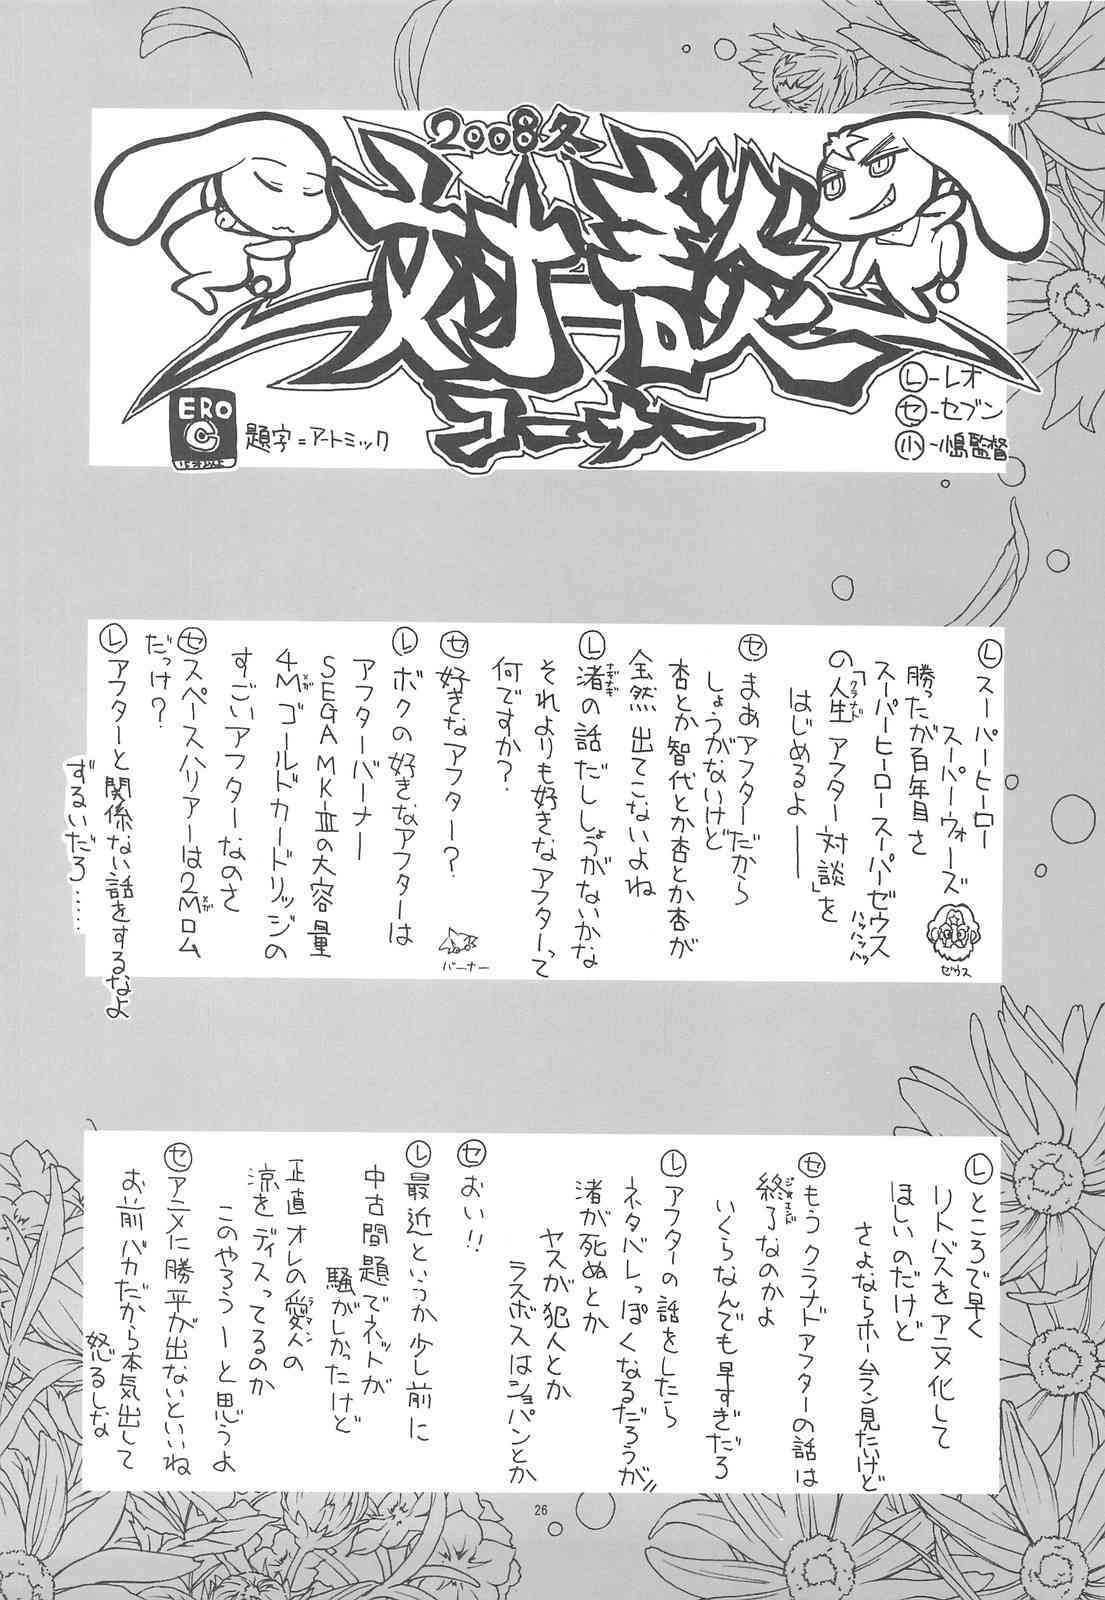 2008冬
対談
コーナー
ERO
C
題字=アートミック
Ⓛ-レオ
セ-セブン
小-小島監督
Ⓛスーパーヒーロー
スーパーウォーズ
勝ったが百年目さ
スーパーヒーロースーパーゼウス
ハッハッハッ
の「人生アフター対談」を
クラナド
はじめるよ――
ゼウス
セ まあアフターだから
しょうがないけど
杏とか智代とか杏とか杏が
全然出てこないよね
Ⓛ渚の話だししょうがないかな
なぎなぎ
それよりも好きなアフターって
何ですか?
セ 好きなアフター?
Ⓛボクの好きなアフターは
アフターバーナー
SEGA MK-Ⅲの大容量
4Mゴールドカードリッジの
メガ
すごいアフターなのさ
バーナー
セ スペースハリアーは2Mロム
メガ
だっけ?
Ⓛアフターと関係ない話をするなよ
ずるいだろ……
Ⓛところで早く
リトバスをアニメ化して
ほしいのだけど
さよならホームラン見たいけど
セ もうクラナドアフターの話は
終了なのかよ
いくらなんでも早すぎだろ
Ⓛアフターの話をしたら
ネタバレっぽくなるだろうが!!
渚が死ぬとか
ヤスが犯人とか
ラスボスはショパンとか
セ おい!!
Ⓛ最近というか少し前に
中古問題でネットが
騒がしかったけど
正直オレの愛人の
ラマン
涼をディスってるのか
このやろうーと思うよ
セ アニメに勝平が出ないといいね
お前バカだから本気出して
怒るしな
26